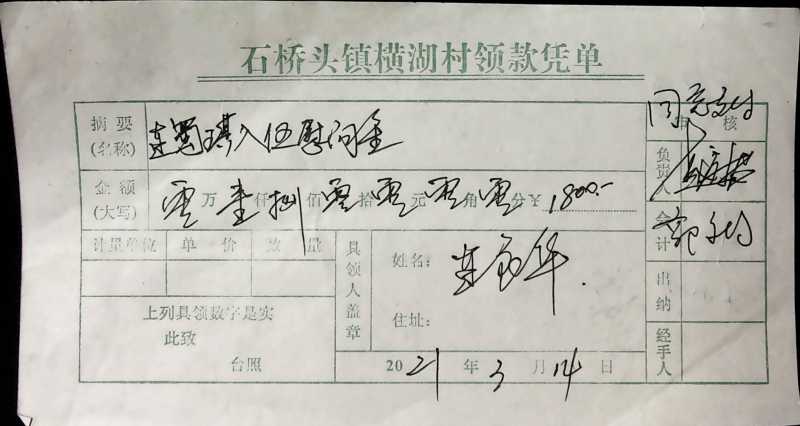 石桥头镇横湖村领款凭单
同意支付
审核
摘要
(名称)
琪入伍慰问金
负责人
金额
(大写)
零万壹仟捌佰零拾零元零角零分¥1800.-
会计
计量单位 单价 数量
具领人盖章
姓名:
华
住址:
出纳
上列具领数字是实
此致
台照
经手人
2021年3月14日